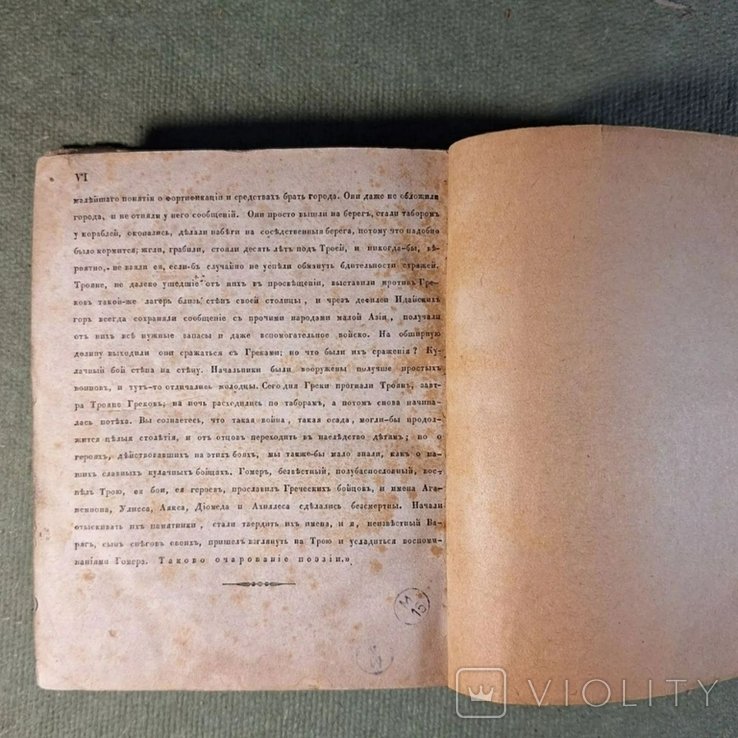 VI
малѣйшаго понятія о фортификаціи и средствахъ брать города. Они даже не обложили
города, и не отняли у него сообщеній. Они просто вышли на берегъ, стали таборомъ
у кораблей, окопались, дѣлали набѣги на сосѣдственныя берега, потому что надобно
было кормится; жгли, грабили, стояли десять лѣтъ подъ Троей, и никогда-бы, вѣ-
роятно, не взяли ея, если-бъ случайно не успѣли обмануть бдительности стражей.
Трояне, не далеко ушедшіе отъ нихъ въ просвѣщеніи, выставили противъ Гре-
ковъ такой-же лагерь близь стѣнъ своей столицы, и чрезъ дефилеи Идайскихъ
горъ всегда сохраняли сообщеніе съ прочими народами малой Азіи, получали
отъ нихъ всѣ нужные запасы и даже вспомогательное войско. На обширную
долину выходили они сражаться съ Греками; но что были ихъ сраженія? Ку-
лачный бой стѣна на стѣну. Начальники были вооружены получше простыхъ
воиновъ, и тутъ-то отличались молодцы. Сегодня Греки прогнали Троянъ, зав-
тра Трояне Грековъ; на ночь расходились по таборамъ, а потомъ снова начина-
лась потѣха. Вы сознаетесь, что такая война, такая осада, могли-бы продол-
жится цѣлыя столѣтія, и отъ отцовъ переходить въ наслѣдство дѣтямъ; но о
герояхъ, дѣйствовавшихъ на этихъ бояхъ, мы также-бы мало знали, какъ о на-
шихъ славныхъ кулачныхъ бойцахъ. Гомеръ, безвѣстный, полубаснословный, вос-
пѣлъ Трою, ея бои, ея героевъ, прославилъ Греческихъ бойцовъ, и имена Ага-
мемнона, Улисса, Аякса, Діомеда и Ахиллеса сдѣлались безсмертны. Начали
отыскивать ихъ памятники, стали твердить ихъ имена, и я, неизвѣстный Ва-
рягъ, сынъ снѣговъ своихъ, пришелъ взглянуть на Трою и усладиться воспоми-
наніями Гомера. Таково очарованіе поэзіи.»
VIOLITY